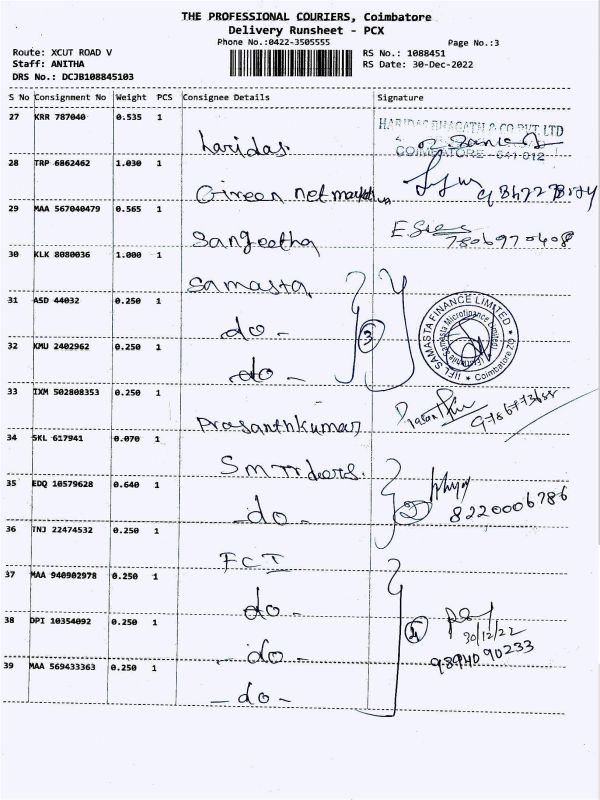 THE PROFESSIONAL COURIERS, Coimbatore
Delivery Runsheet - PCX
Phone No.:0422-3505555
Page No.:3
Route: XCUT ROAD V
RS No.: 1088451
Staff: ANITHA
RS Date: 30-Dec-2022
DRS No.: DCJB108845103
S No Consignment No Weight PCS Consignee Details Signature
27 KRR 787040 0.535 1
haridas.
HARIDAS BHAGATH & CO PVT. LTD
COIMBATORE - 641 012
28 TRP 6862462 1.030 1
Green net marketing
29 MAA 567040479 0.565 1
Sangeetha
7806970408
30 KLK 8080036 1.000 1
Samasta
31 ASD 44032 0.250 1
- do -
3
IIFL SAMASTA FINANCE LIMITED
(Formerly Samasta Microfinance Limited)
Coimbatore ZO
32 KMU 2402962 0.250 1
- do -
33 IXM 502808353 0.250 1
Prasanthkumar
34 SKL 617941 0.070 1
35 EDQ 10579628 0.640 1
- do -
2
8220006786
36 TNJ 22474532 0.250 1
FCI
37 MAA 940902978 0.250 1
do -
38 DPI 10354092 0.250 1
- do -
4
30/12/22
9894090233
39 MAA 569433363 0.250 1
- do -